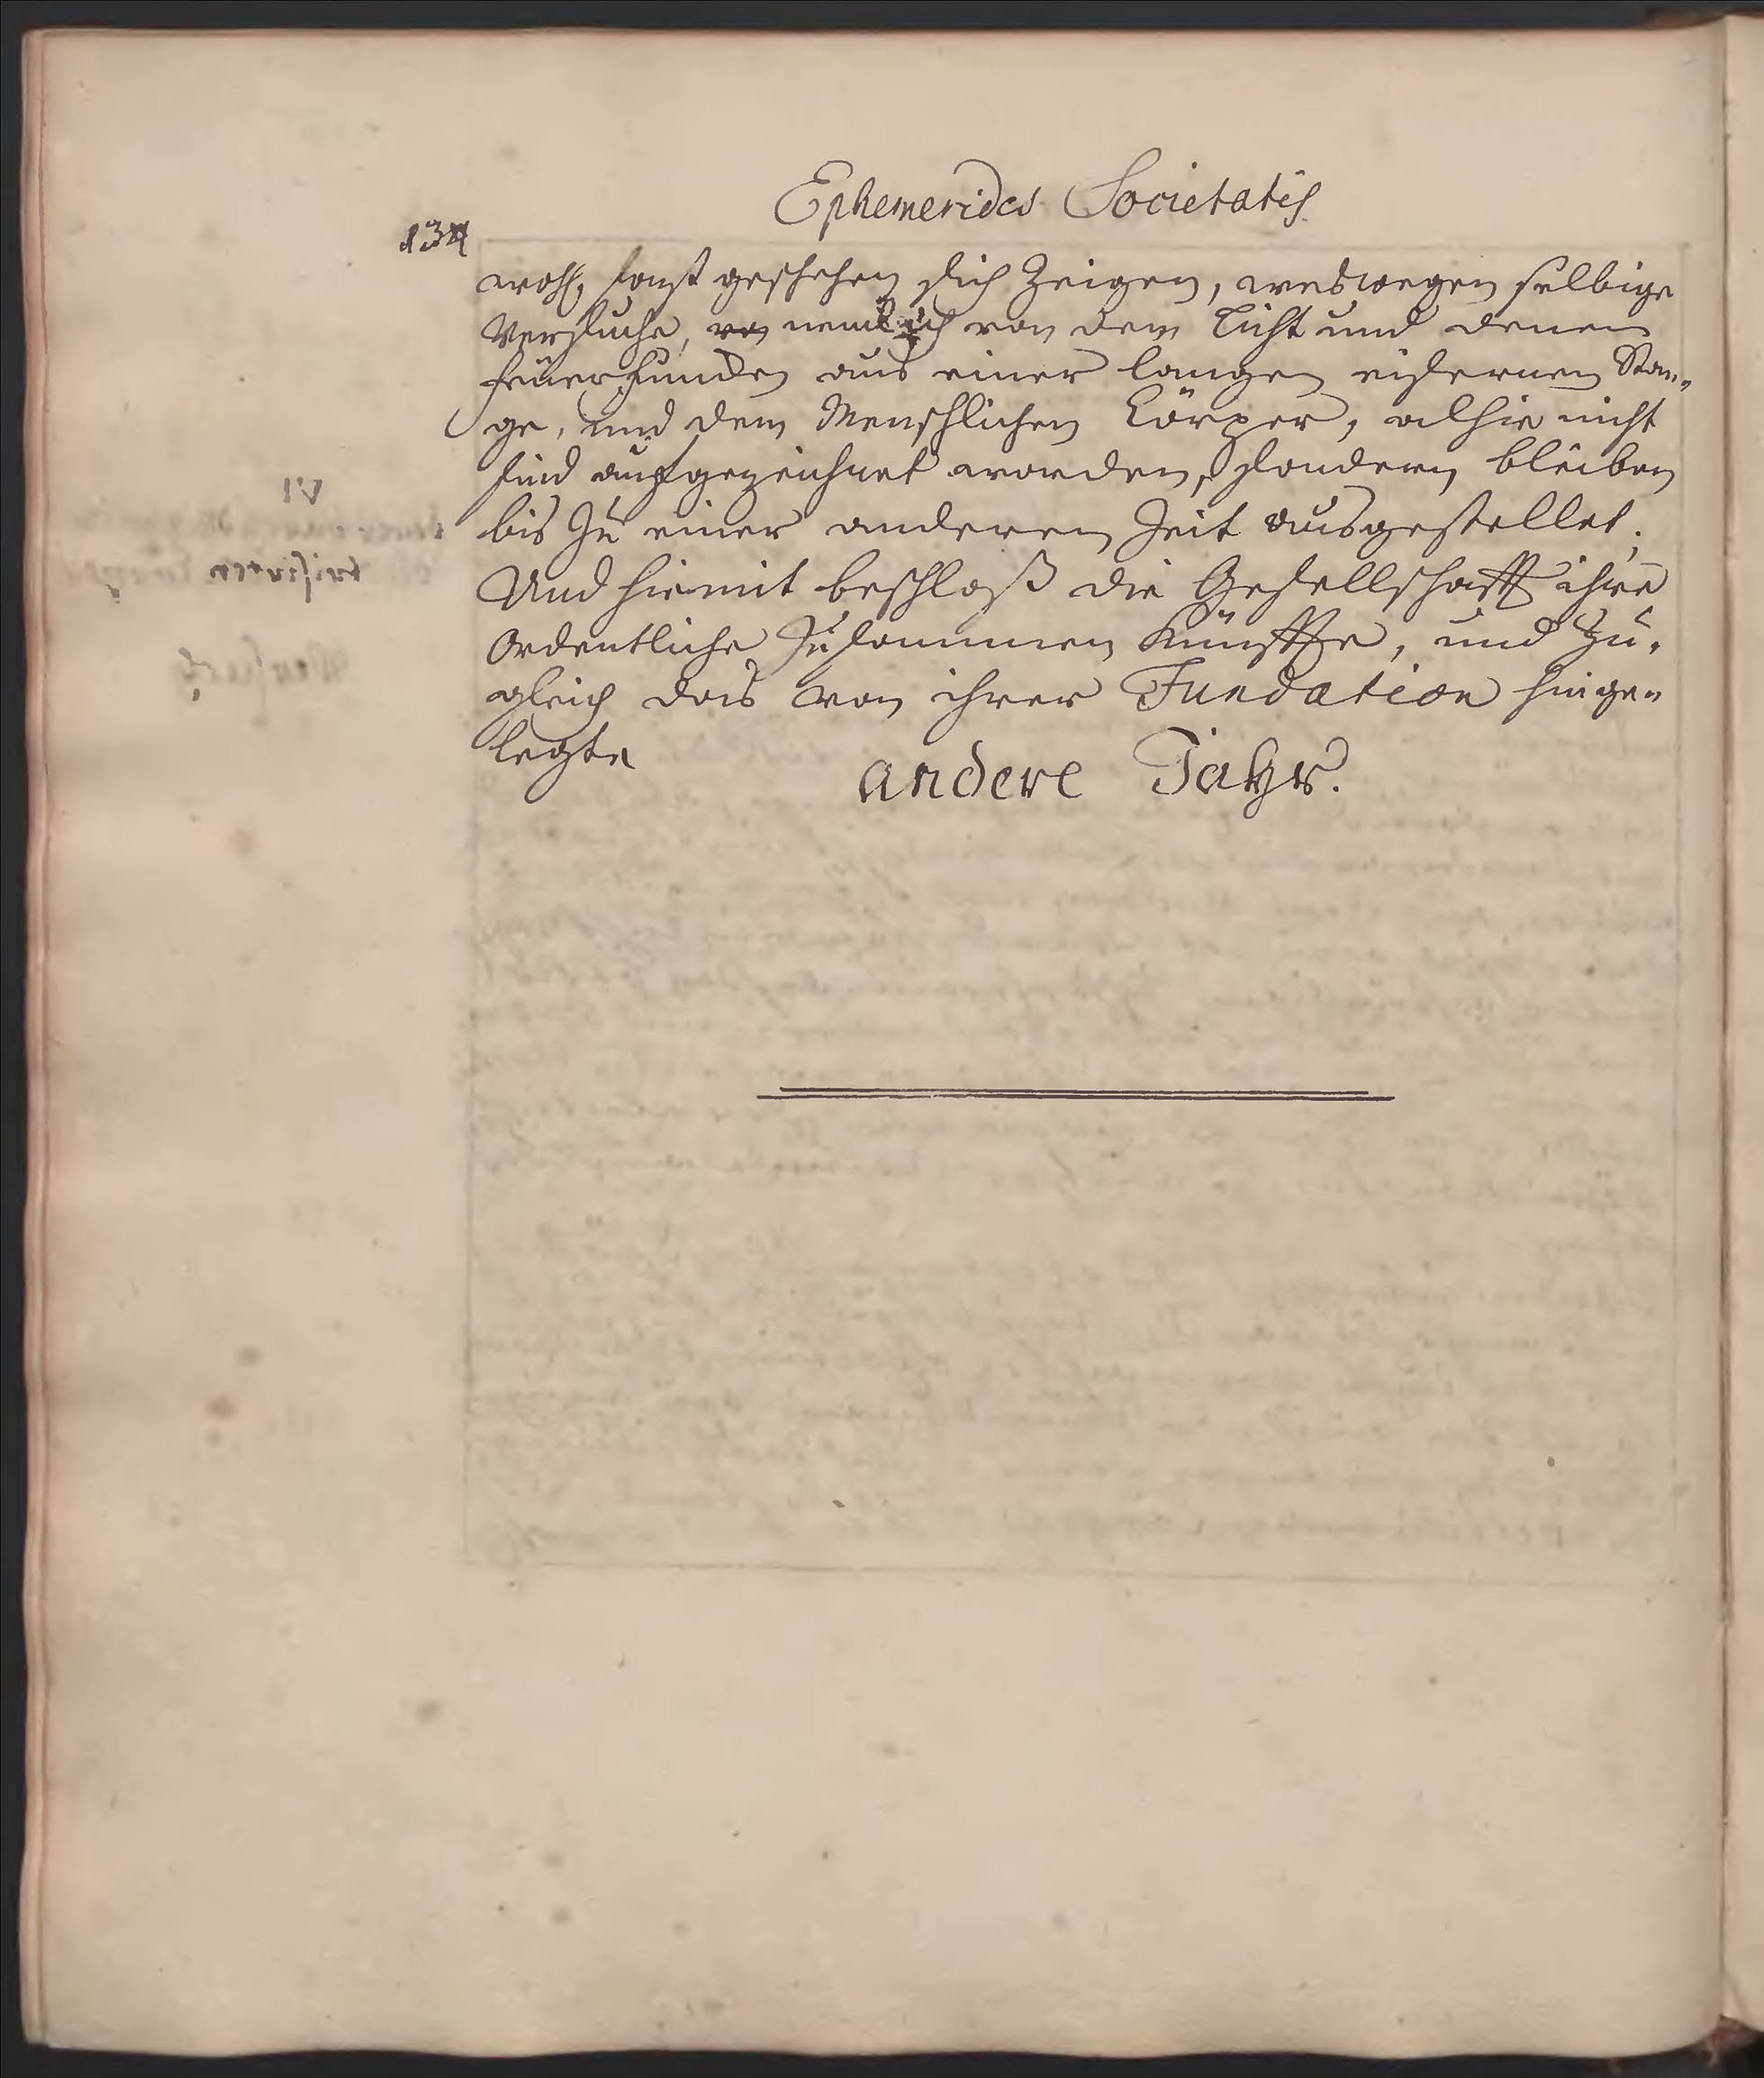 Ephemerides Societatis
134
wohl, sonst geschehen sich Zeigen, weswegen selbige
Versuche, nemlich von dem Licht und denen
feuerfuncken aus einer langen eisernen Stan„
ge, und dem Menschlichen Cörper, alhie nicht
sind aufgezeichnet worden, sondern bleiben
bis zu einer anderen Zeit ausgestellet;
Und hiemit beschloß die Gesellschafft ihre
Ordentliche Zusammen Künffte, und zu„
gleich das von ihrer Fundation hinge„
legte
andere Jahr.